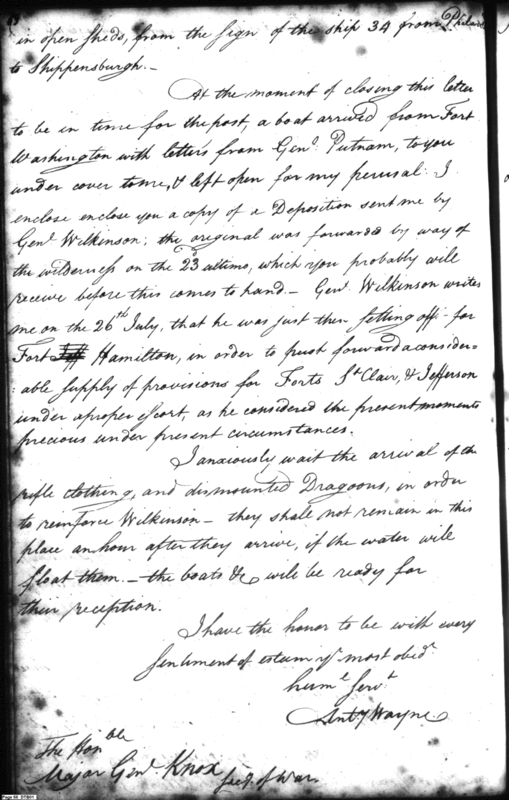 in open sheds, from the sign of the ship 34 from
to Shippensburgh.—
At the moment of closing this letter
to be in time for the post, a boat arrived from Fort
Washington with letters from Genl. Putnam, to you
under cover to me, & left open for my perusal. I
enclose enclose you a copy of a Deposition sent me by
Genl. Wilkinson; the original was forwarded by way of
the wilderness on the 23d ultimo, which you probably will
receive before this comes to hand— Genl. Wilkinson writes
me on the 26th July, that he was just then setting off for
Fort Jeff Hamilton, in order to push forward a consider=
:able supply of provisions for Forts St Clair, & Jefferson
under a proper escort, as he considered the present moments
precious under present circumstances.
I anxiously wait the arrival of the
rifle clothing, and dismounted Dragoons, in order
to reinforce Wilkinson— they shall not remain in this
place an hour after they arrive, if the water will
float them.— the boats &c will be ready for
their reception.
I have the honor to be with every
sentiment of esteem yr. most obedt.
huml. Servt.
Anty Wayne
The Honble
Major Genl Knox Secy. of War.